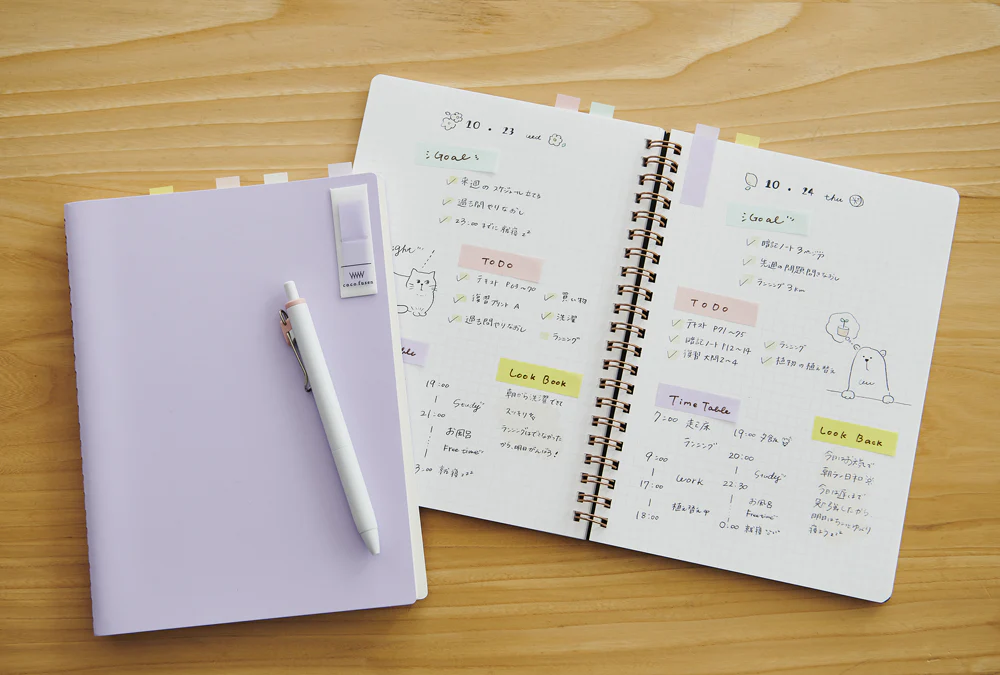 coco fusen
10 . 23 wed
Goal
来週のスケジュール立てる
過去問やりなおし
23:00までに就寝
ight
TODO
テキスト P69~70
復習プリント A
過去問やりなおし
買い物
洗濯
ランニング
ble
19:00
Study
21:00
お風呂
Free time
3:00 就寝
Look Book
朝から洗濯できて
スッキリ
ランニングはできなかった
から、明日がんばろ!
10 . 24 thu
Goal
暗記ノート 3ページ
先週の問題問きなおし
ランニング 3km
TODO
テキスト P71~75
暗記ノート P12~14
復習 大問2~4
ランニング
植物の植え替え
Time Table
7:00 起床
ランニング
9:00
Work
17:00
植え替え
18:00
19:00 夕飯
20:00
Study
22:30
お風呂
Free time
0:00 就寝
Look Back
今日はお天気で
朝ラン日和
今日は遅くまで
勉強したから
明日は